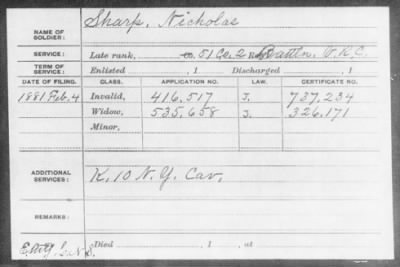 NAME OF SOLDIER: Sharp, Nicholas
SERVICE: Late rank, co. 51 Co. 2 Battn. V.R.C.
TERM OF SERVICE: Enlisted , 1 Discharged , 1
DATE OF FILING. CLASS. APPLICATION NO. LAW. CERTIFICATE NO.
1881 Feb. 4 Invalid, 416.517 J. 737.234
Widow, 535.658 J. 326.171
Minor,
ADDITIONAL SERVICES: K. 10 N.Y. Cav.
REMARKS:
Died , 1 , at